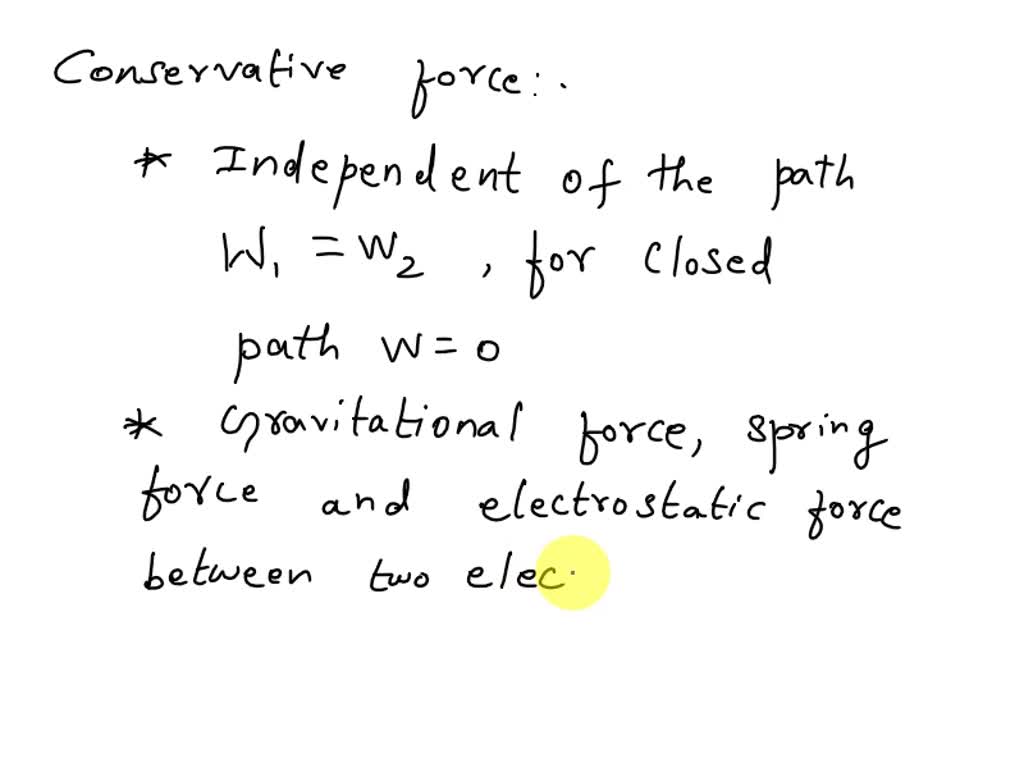 Conservative force:.
* Independent of the path
W₁ = W₂ , for closed
path W = 0
* Gravitational force, spring
force and electrostatic force
between two elec